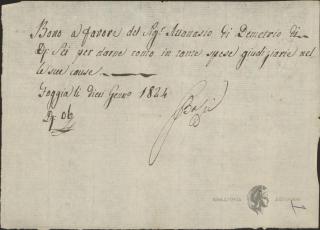 Bono a favore del Sigr Attanasio di Demetrio di
Dti Sei per darne conto in conto spese giudiziarie nel
le sue cause.
Foggia li dieci Genro 1824